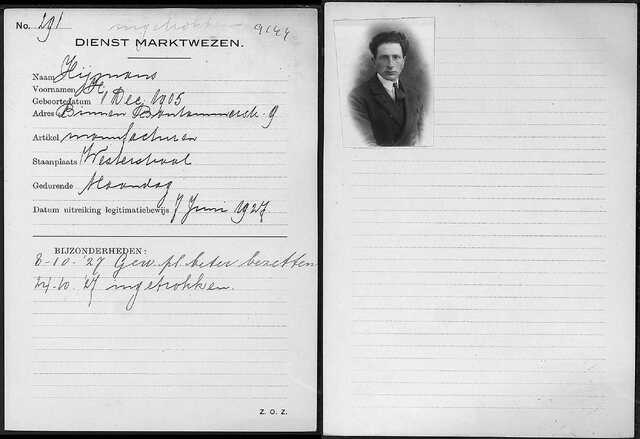 No. 291 ingetrokken 9144
DIENST MARKTWEZEN.
Naam Hijmans
Voornamen H
Geboortedatum 1 Dec 1905
Adres Binnen Bantammerstr. 9
Artikel manufacturen
Staanplaats Westerstraat
Gedurende Maandag
Datum uitreiking legitimatiebewijs 7 Juni 1927.
BIJZONDERHEDEN:
8-10-'27 Gew. pl. beter bezetten
24-10-'27 ingetrokken.
Z. O. Z.